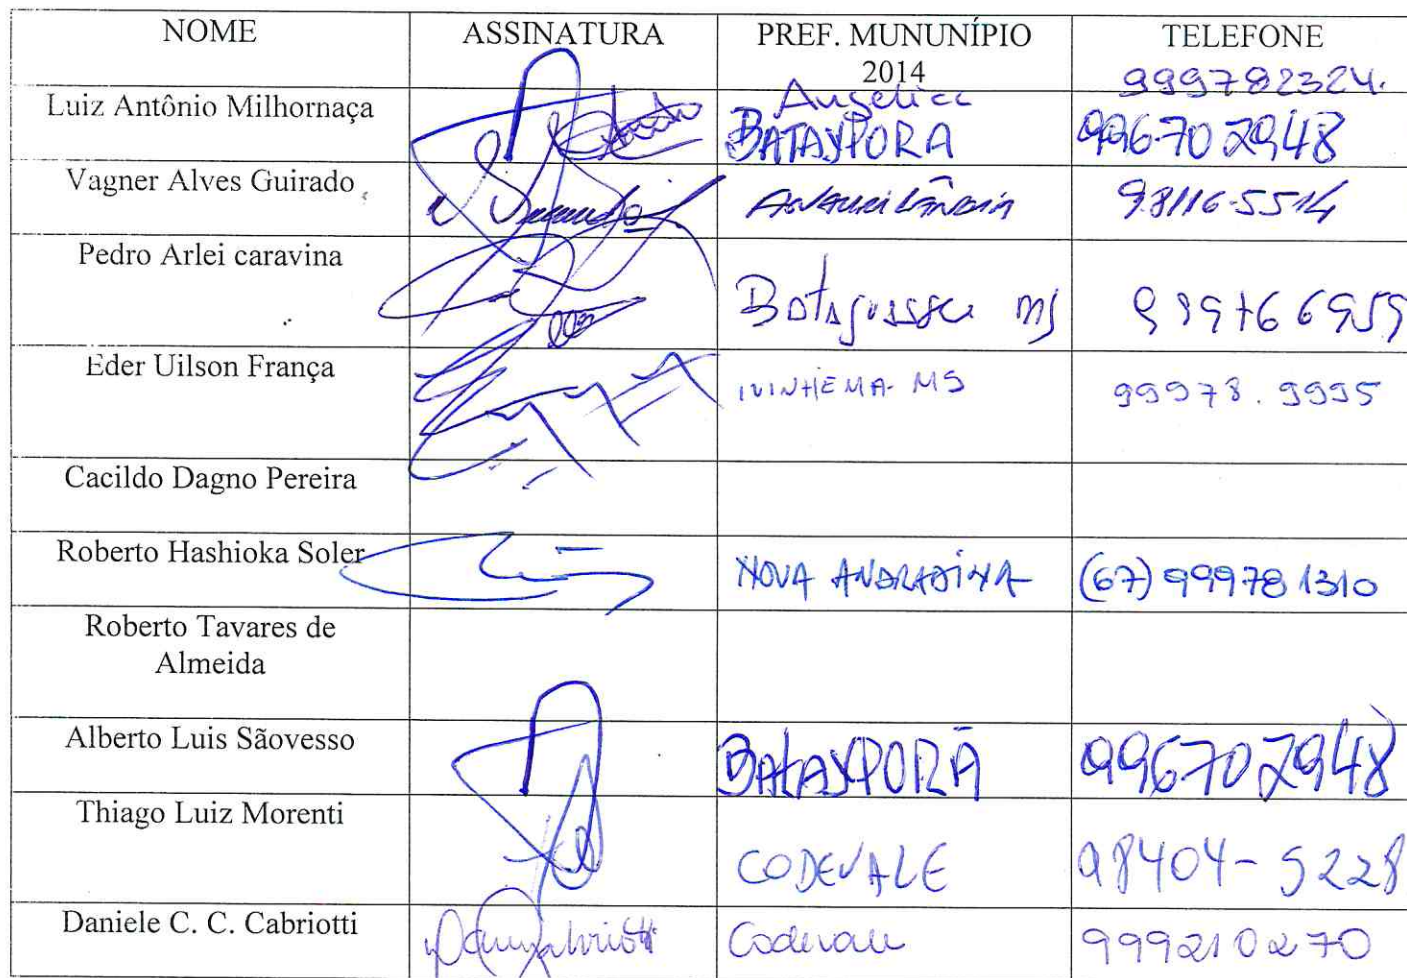 NOME ASSINATURA PREF. MUNUNÍPIO TELEFONE
2014
999782324.
Luiz Antônio Milhornaça Angélica
BATAYPORA 996702948
Vagner Alves Guirado ANAURILÂNDIA 98116-5514
Pedro Arlei caravina
Bataguassu MS 999766959
Eder Uilson França IVINHEMA-MS 99978.9995
Cacildo Dagno Pereira
Roberto Hashioka Soler NOVA ANDRADINA (67) 999781310
Roberto Tavares de
Almeida
Alberto Luis Sãovesso BATAYPORÃ 996702948
Thiago Luiz Morenti
CODEVALE 98404-5228
Daniele C. C. Cabriotti Codevale 999210270